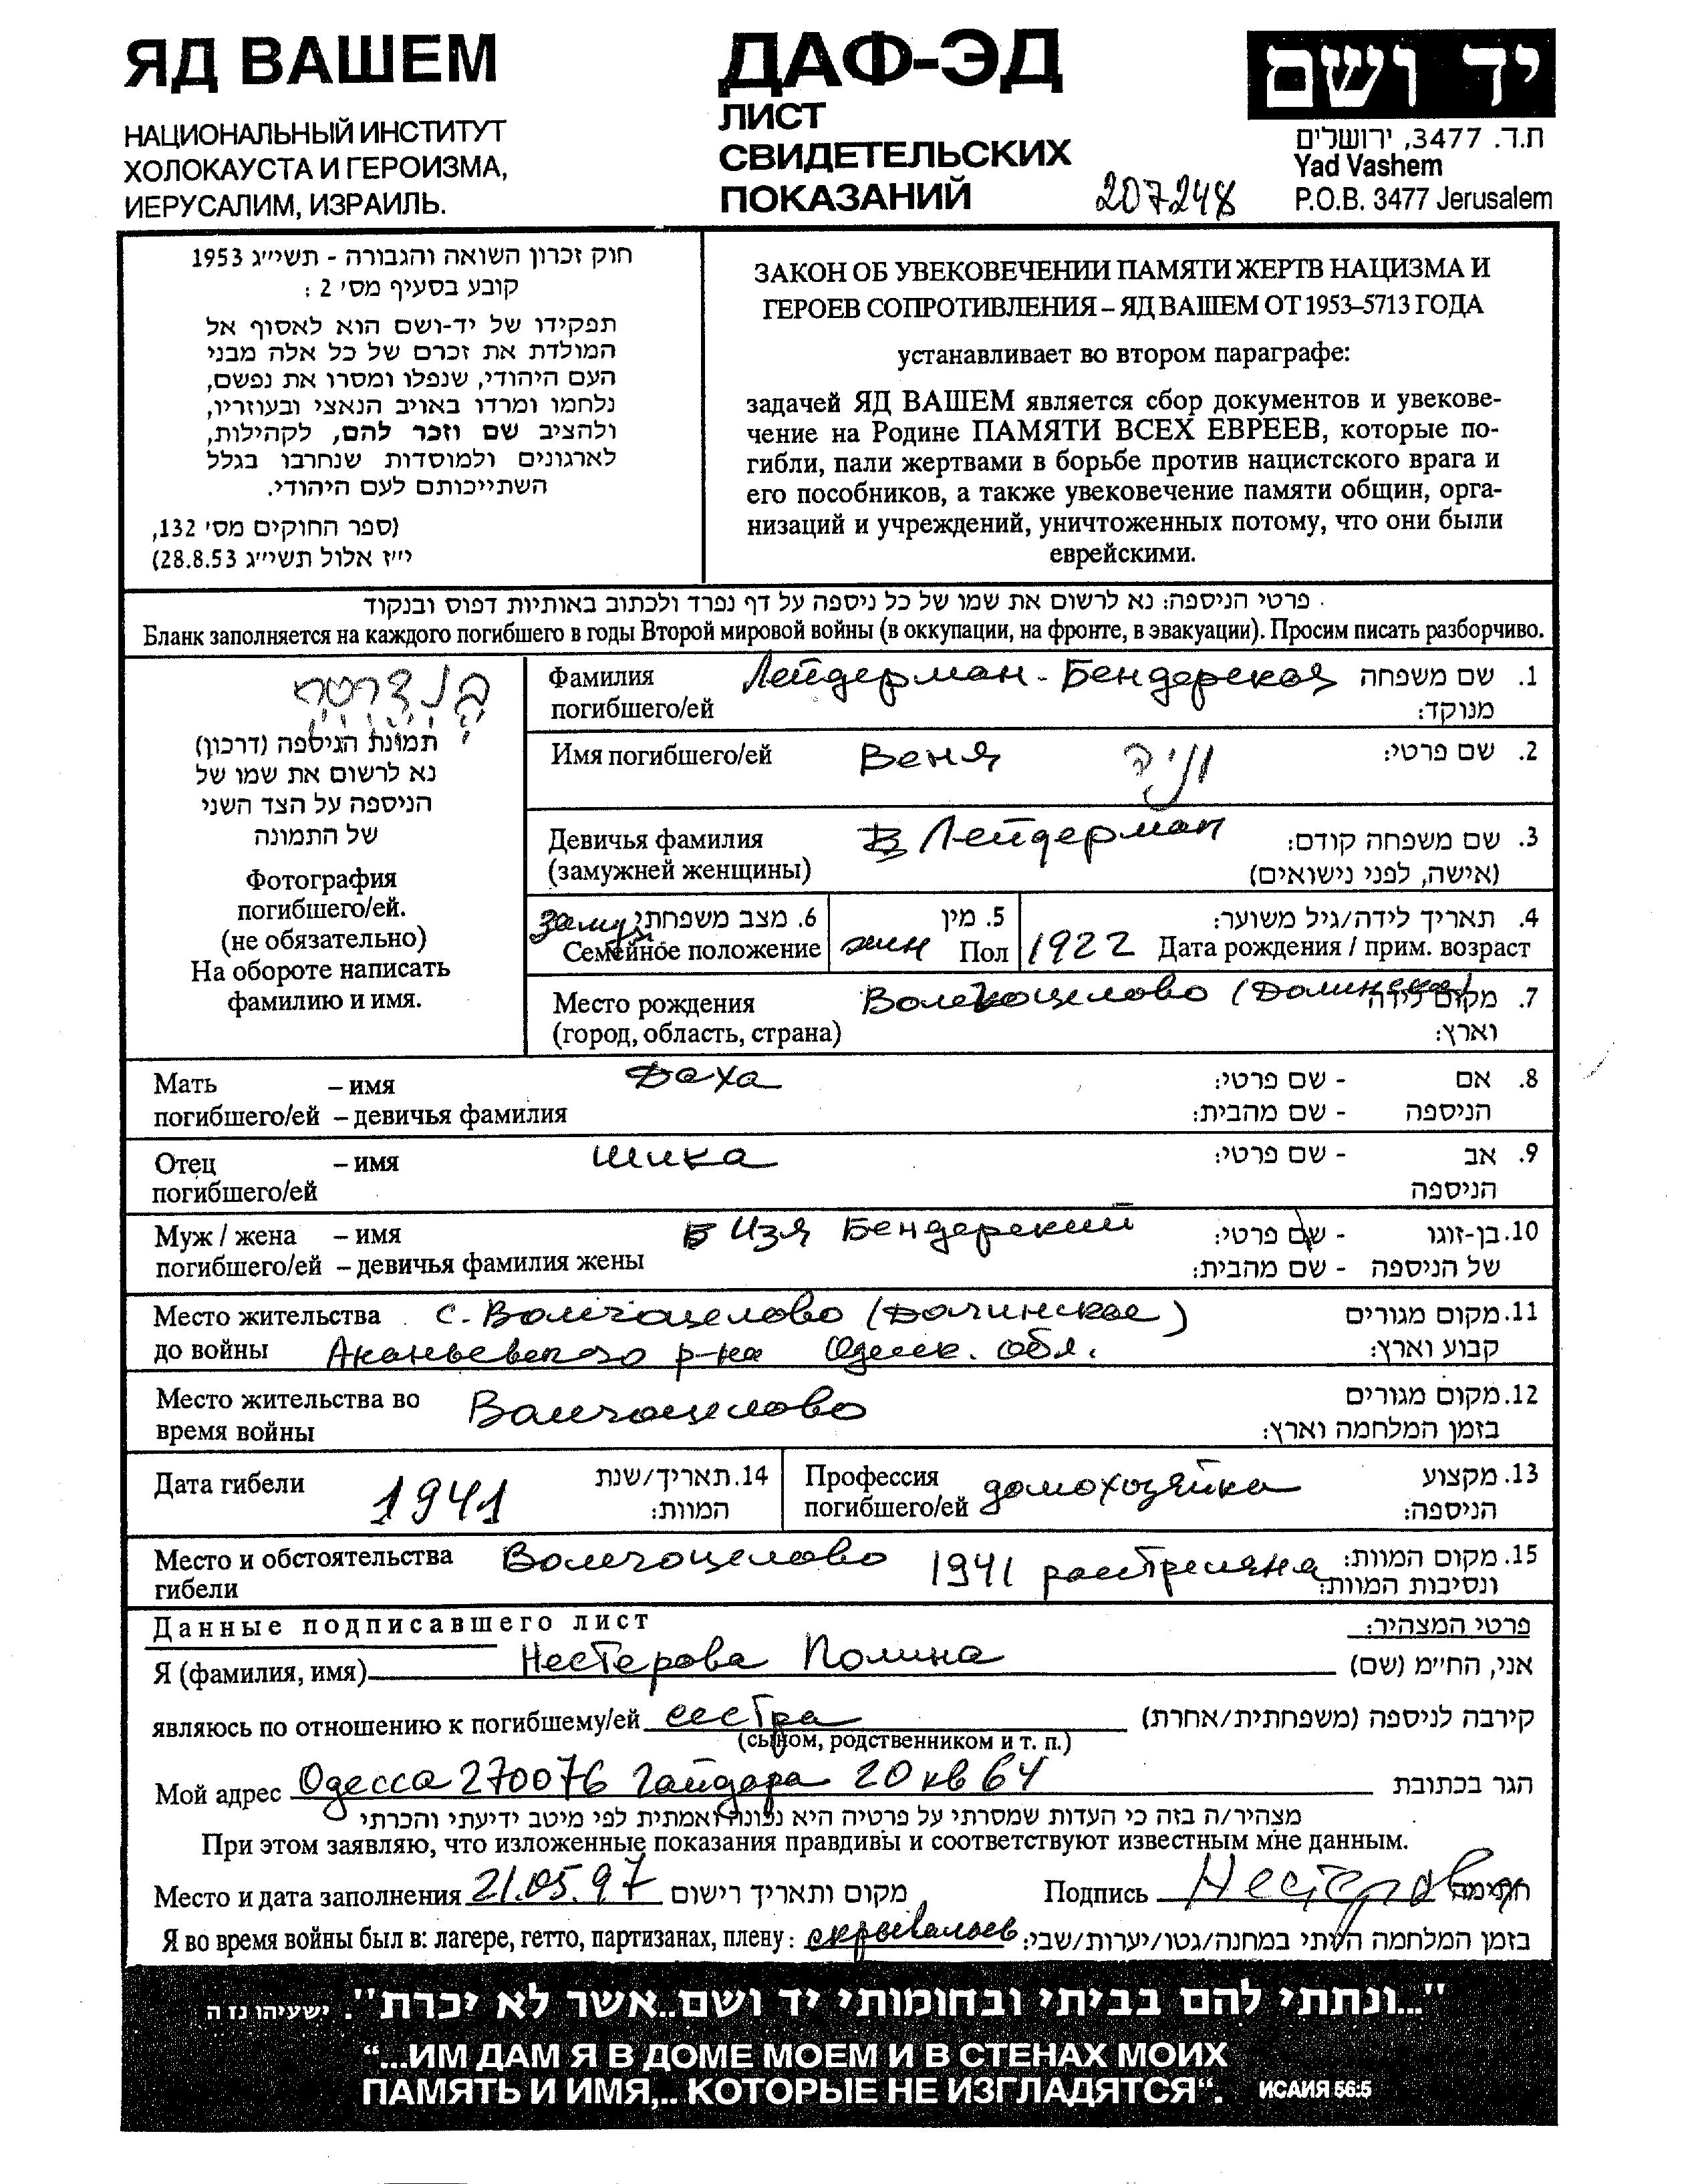 ЯД ВАШЕМ
НАЦИОНАЛЬНЫЙ ИНСТИТУТ
ХОЛОКАУСТА И ГЕРОИЗМА,
ИЕРУСАЛИМ, ИЗРАИЛЬ.
ДАФ-ЭД
ЛИСТ
СВИДЕТЕЛЬСКИХ
ПОКАЗАНИЙ
207248
יד ושם
ת.ד. 3477, ירושלים
Yad Vashem
P.O.B. 3477 Jerusalem
חוק זכרון השואה והגבורה - תשי״ג 1953
קובע בסעיף מס׳ 2 :
תפקידו של יד-ושם הוא לאסוף אל
המולדת את זכרם של כל אלה מבני
העם היהודי, שנפלו ומסרו את נפשם,
נלחמו ומרדו באויב הנאצי ובעוזריו,
ולהציב שם וזכר להם, לקהילות,
לארגונים ולמוסדות שנחרבו בגלל
השתייכותם לעם היהודי.
(ספר החוקים מס׳ 132,
י״ז אלול תשי״ג 28.8.53)
ЗАКОН ОБ УВЕКОВЕЧЕНИИ ПАМЯТИ ЖЕРТВ НАЦИЗМА И
ГЕРОЕВ СОПРОТИВЛЕНИЯ – ЯД ВАШЕМ ОТ 1953–5713 ГОДА
устанавливает во втором параграфе:
задачей ЯД ВАШЕМ является сбор документов и увекове-
чение на Родине ПАМЯТИ ВСЕХ ЕВРЕЕВ, которые по-
гибли, пали жертвами в борьбе против нацистского врага и
его пособников, а также увековечение памяти общин, орга-
низаций и учреждений, уничтоженных потому, что они были
еврейскими.
פרטי הניספה: נא לרשום את שמו של כל ניספה על דף נפרד ולכתוב באותיות דפוס ובנקוד
Бланк заполняется на каждого погибшего в годы Второй мировой войны (в оккупации, на фронте, в эвакуации). Просим писать разборчиво.
תמונת הניספה (דרכון)
נא לרשום את שמו של
הניספה על הצד השני
של התמונה
Фотография
погибшего/ей.
(не обязательно)
На обороте написать
фамилию и имя.
Фамилия Лейдерман-Бендерская 1. שם משפחה
погибшего/ей מנוקד:
Имя погибшего/ей Веня וניה 2. שם פרטי:
Девичья фамилия Лейдерман 3. שם משפחה קודם:
(замужней женщины) (אישה, לפני נישואים)
6. מצב משפחתי 5. מין 4. תאריך לידה/גיל משוער:
Семейное положение замуж Пол жен 1922 Дата рождения / прим. возраст
Место рождения 7. מקום לידה
(город, область, страна) וארץ:
Мать – имя Даха 8. אם - שם פרטי:
погибшего/ей – девичья фамилия הניספה - שם מהבית:
Отец – имя Шика 9. אב - שם פרטי:
погибшего/ей הניספה
Муж / жена – имя Изя Бендерский 10. בן-זוגו - שם פרטי:
погибшего/ей – девичья фамилия жены של הניספה - שם מהבית:
Место жительства с. (Долинское) 11. מקום מגורים
до войны Ананьевского р-на Одесск. обл. קבוע וארץ:
Место жительства во 12. מקום מגורים
время войны בזמן המלחמה וארץ:
Дата гибели 1941 14. תאריך/שנת המוות:
Профессия погибшего/ей домохозяйка 13. מקצוע הניספה:
Место и обстоятельства 1941 расстреляна 15. מקום המוות:
гибели ונסיבות המוות:
Данные подписавшего лист פרטי המצהיר:
Я (фамилия, имя) Нестерова Полина אני, הח״מ (שם)
являюсь по отношению к погибшему/ей сестра קירבה לניספה (משפחתית/אחרת)
(сыном, родственником и т. п.)
Мой адрес Одесса 270076 Гайдара 20 кв 64 הגר בכתובת
מצהיר/ה בזה כי העדות שמסרתי על פרטיה היא נכונה ואמתית לפי מיטב ידיעתי והכרתי
При этом заявляю, что изложенные показания правдивы и соответствуют известным мне данным.
Место и дата заполнения 21.05.97 מקום ותאריך רישום Подпись Нестерова חתימה
Я во время войны был в: лагере, гетто, партизанах, плену: скрывалась בזמן המלחמה הייתי במחנה/גטו/יערות/שבי:
"...ונתתי להם בביתי ובחומותי יד ושם..אשר לא יכרת". ישעיהו נז ה
“...ИМ ДАМ Я В ДОМЕ МОЕМ И В СТЕНАХ МОИХ
ПАМЯТЬ И ИМЯ,.. КОТОРЫЕ НЕ ИЗГЛАДЯТСЯ“. ИСАИЯ 56:5